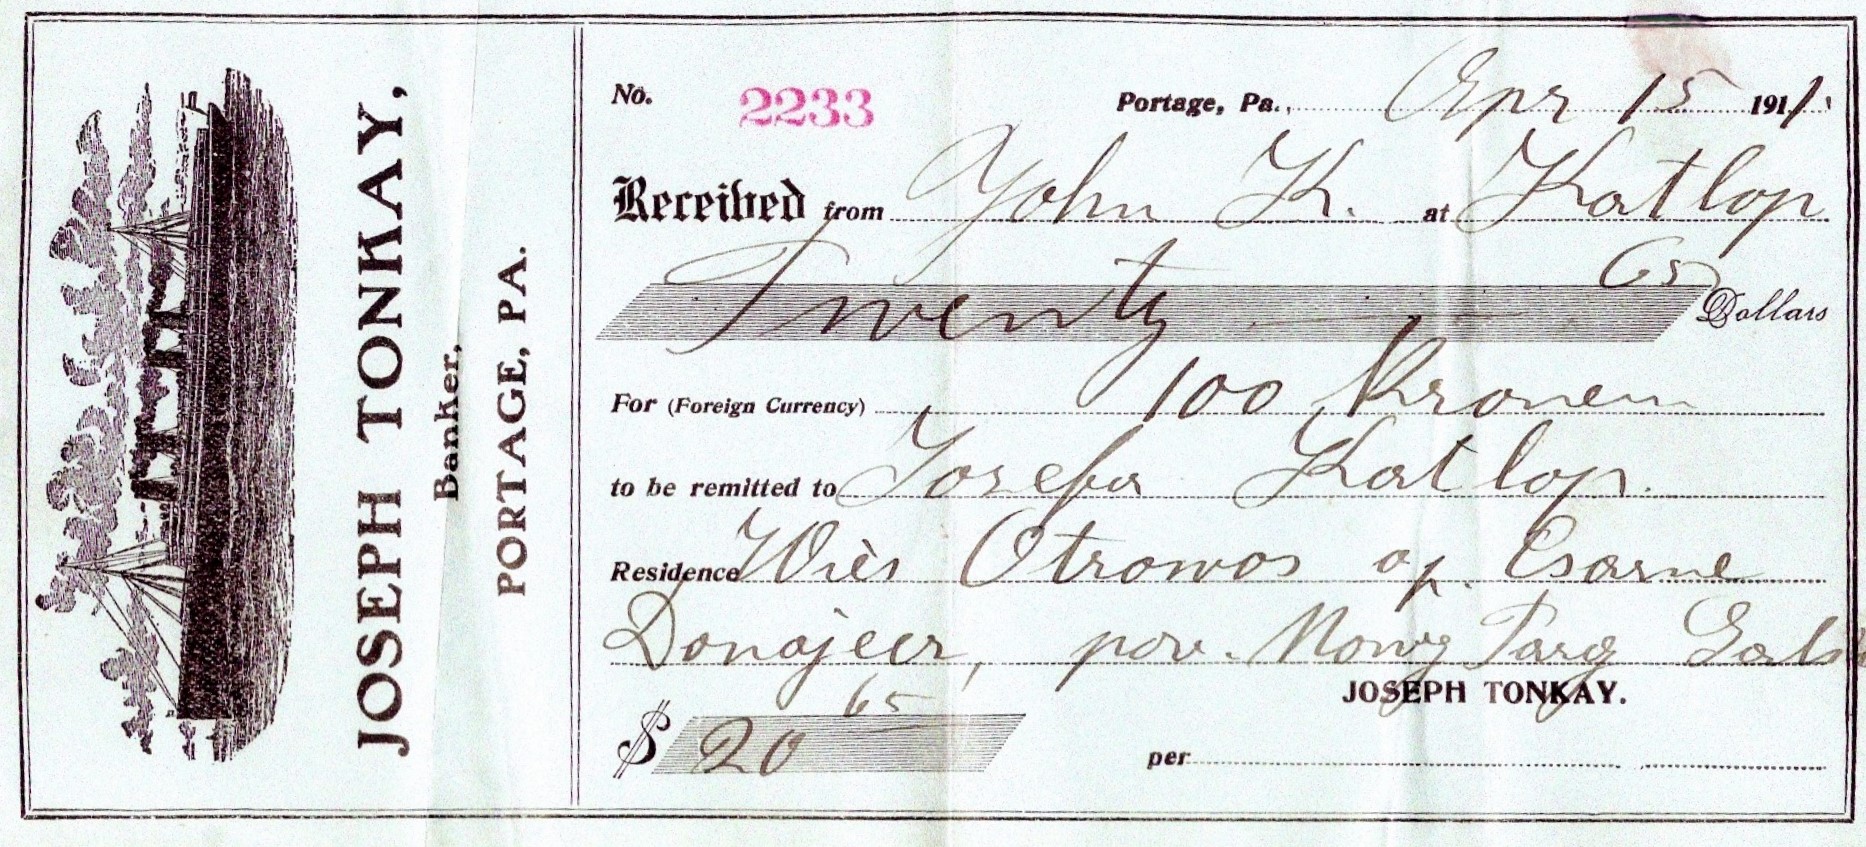 JOSEPH TONKAY,
Banker,
PORTAGE, PA.
No. 2233 Portage, Pa., Apr 15 1911.
Received from John K. at Katlop
Twenty 65 Dollars
For (Foreign Currency) 100 Kronen
to be remitted to Jozefa Katlop.
Residence Wieś Otrowos op. Czarne
Donajecz, pow. Nowy Targ Gal
JOSEPH TONKAY.
$ 20 65
per